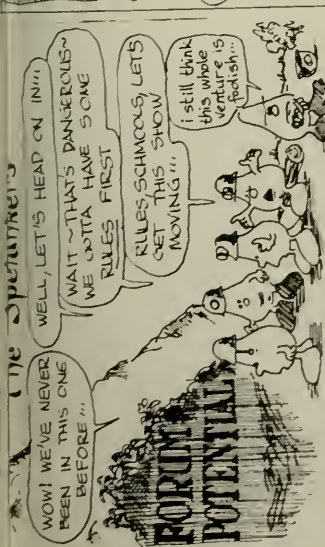 The Spelunkers
WOW! WE'VE NEVER
BEEN IN THIS ONE
BEFORE...
WELL, LET'S HEAD ON IN...
WAIT~THAT'S DANGEROUS~
WE GOTTA HAVE SOME
RULES FIRST
RULES, SCHMOOLS, LETS
GET THIS SHOW
MOVING...
i still think
this whole
venture is
foolish...
FORUM
POTENTIAL